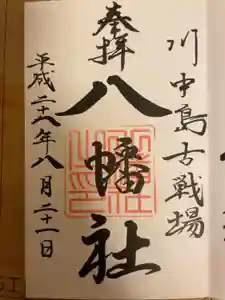 川中島古戦場
奉拝
八幡社
平成二十八年八月二十一日